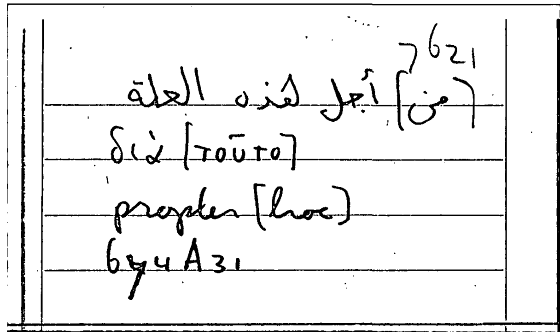 7621
[من] أجل هذه العلة
διὰ [τοῦτο]
propter [hoc]
644A31